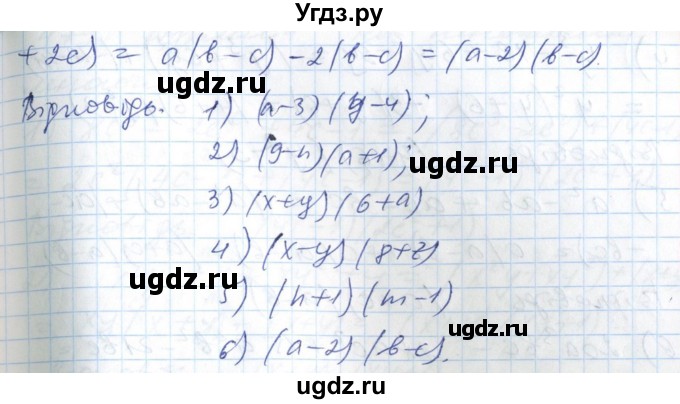 Угдз.ру
+2c) = a(b-c) -2(b-c) = (a-2)(b-c)
Відповідь. 1) (a-3)(y-4);
2) (9-n)(a+1);
3) (x+y)(6+a)
4) (x-y)(8+z)
5) (n+1)(m-1)
6) (a-2)(b-c).
ugdz.ru
ugdz.ru
ugdz.ru
ugdz.ru
ugdz.ru
ugdz.ru
ugdz.ru
ugdz.ru